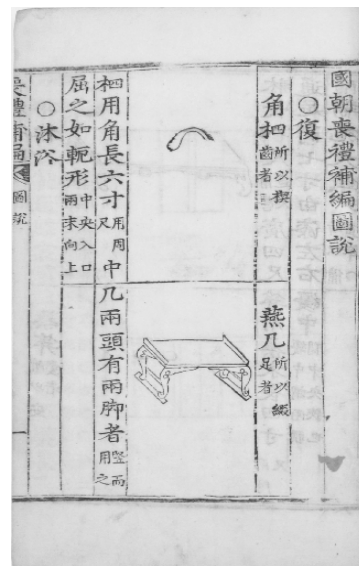 國朝喪禮補編圖說
○復
角柶所以楔齒者
燕几所以綴足者
柶用角長六寸用周尺中
屈之如軛形中央入口兩末向上
几兩頭有兩脚者豎而用之
○沐浴
喪禮補編
圖說